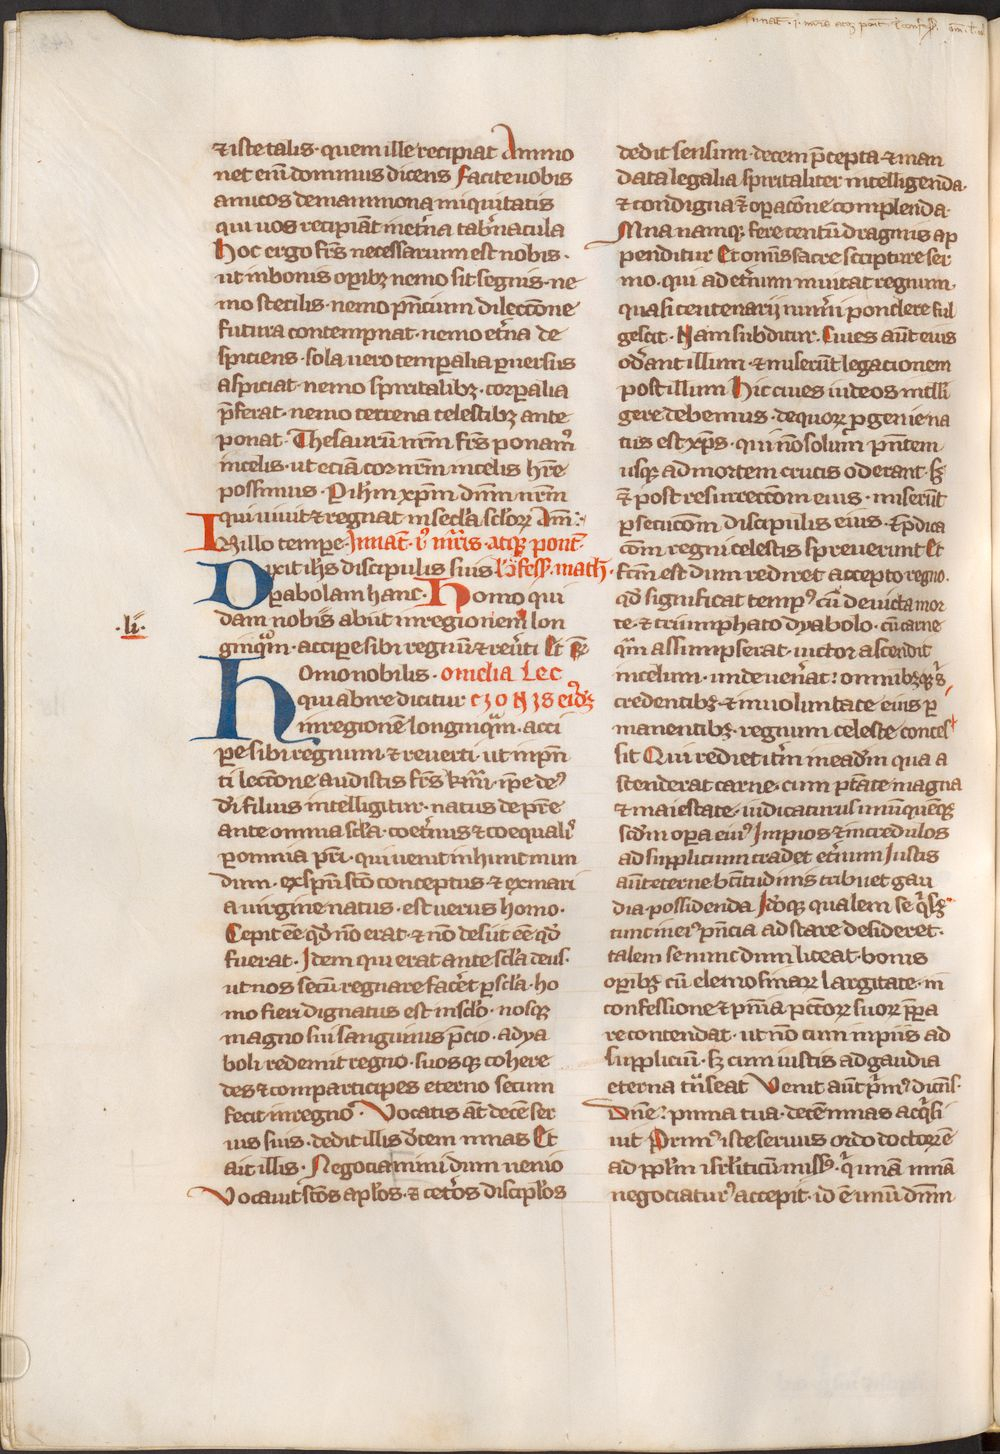 ⁊ iste talis · quem ille recipiat Ammo
net eni̅ dominus dicens facite uobis
amicos de mammona iniquitatis
qui uos recipia̅t in et̓na tab̓nacula
Hoc ergo fr̅s necessarium est nobis ·
ut in bonis op̅ibꝫ nemo sit segnis · ne
mo sterilis · nemo p̅ncium dileccione
futura contempnat · nemo et̓na de
spiciens · sola uero temp̅alia p̅uersus
aspiciat · nemo spiritalibꝫ · corp̅alia
p̅ferat · nemo terrena celestibꝫ ante
ponat · Thesauru̅ nr̅m fr̅s ponam̓
in celis · ut ecia̅ cor nr̅m in celis hr̅e
possimus · P ih̅m xp̅m dn̅m nr̅m
qui uiuit ⁊ regnat in sc̅la sc̅loꝝ Am̅ ·
IN illo tempe · In nat̅ · i̓ mr̅is · atqꝫ pont̅
Dixit ih̅s discipulis suis ⁊ ꝯfess̅ · math̅ ·
p̅abolam hanc · Homo qui
dam nobilis abiit in regionem lon
· li ·
ginqͣm · accipe sibi regnu̅ ⁊ reu̓ti Et r̅
Homo nobilis · omelia Lec
qui abire dicitur CIONIS eiꝰdꝫ
in regione̅ longinqͣm · acci
pe sibi regnum · ⁊ reuerti · ut in p̅n
ti leccione audistis fr̅s k̅mi · ip̅e deꝰ
di̓ filius intelligitur · natus de pr̅e
ante omnia sc̅la · coet̓nus ⁊ coequalis̓
p̅ omnia pr̅i · qui uenit in hunc mun
dum · ex sp̅u sc̅o conceptus · ⁊ ex mari
a uirgine natus · est uerus homo ·
Cepit ee̅ qd̓ no̅ erat · ⁊ no̅ desiit ee̅ qd̓
fuerat · Idem qui erat ante sc̅la deus ·
ut nos secu̅ regnare fac̓et p̅ sc̅la · ho
mo fieri dignatus est in sc̅lo · nosqꝫ
magno sui sanguinis p̅cio · a dya
boli redemit regno · suosqꝫ cohere
des ⁊ comparticipes eterno secum
fecit in regno · Vocatis at̅ dece̅ ser
uis suis · dedit illis dece̅m mnas Et
ait illis · Negociamini dum uenio
Vocauit sc̅os apl̅os · ⁊ cet̓os discipl̅os
dedit sensum · decem p̅cepta ⁊ man
data legalia spiritaliter intelligenda ·
⁊ condigna ꝯ op̅acōne complenda ·
Mna namqꝫ fere centu̅ dragmis ap
penditur Et om̅is sacre scripture ser
mo · qui ad et̓num inuitat regnum ·
quasi centenarij num̓i pondere ful
gescit · Nam subditur · Ciues aut̅ eius
od̓ant illum · ⁊ miseru̅t legacionem
post illum Hic ciues iudeos intelli
gere debemus · de quoꝝ p̅genie na
tus est xp̅s · qui no̅ solum p̅ntem
usqꝫ ad mortem crucis oderant · sꝫ
⁊ post resurreccōm eius · miseru̅t
p̅secucōm discipulis eius · ⁊ p̅dica
cōm regni celestis spreuerunt Et
fc̅m est dum rediret accepto regno ·
qd̓ significat tempꝰ cu̅ deuicta mor
te · ⁊ triumphato dyabolo · cu̅ carne
qͣm assumpserat · uictor ascendit
in celum · unde uen̓at : omnibꝫqꝫ s̓
credentibꝫ · ⁊ in uoluntate eius p̅
manentibꝫ · regnum celeste conces
sit Qui rediet it̓m in eadem qua a
scenderat carne · cum p̅tate magna
⁊ maiestate · iudicaturus unu̅quē̅qꝫ
scd̅m opera eiꝰ Impios ⁊ incredulos
ad supplicium tradet et̓num Iustis
aut̅ eterne bt̅itudinis tribuet gau
dia possidenda Id̓oqꝫ qualem se qͥsqꝫ
tunc in eiꝰ p̅ncia adstare desideret ·
talem se nunc dum liceat · bonis
op̅ibꝫ cu̅ elemosinaꝝ largitate · in
confessione ⁊ pn̅ia · pctōꝝ suoꝝ p̅pa
re contendat · ut no̅ cum impiis ad
suppliciu̅ · sꝫ cum iustis ad gaudia
eterna tͣnseat Venit aut̅ p̓mꝰ dicens ·
Dn̅e : mna tua · dece̅ mnas acqͥsi
uit Primꝰ iste seruus ordo doctoꝝ e̅
ad pp̅lm isrl̅iticu̅ missꝰ · qͥ una̅ mna̅
negociaturꝰ accepit · id e̅ unu̅ dn̅m